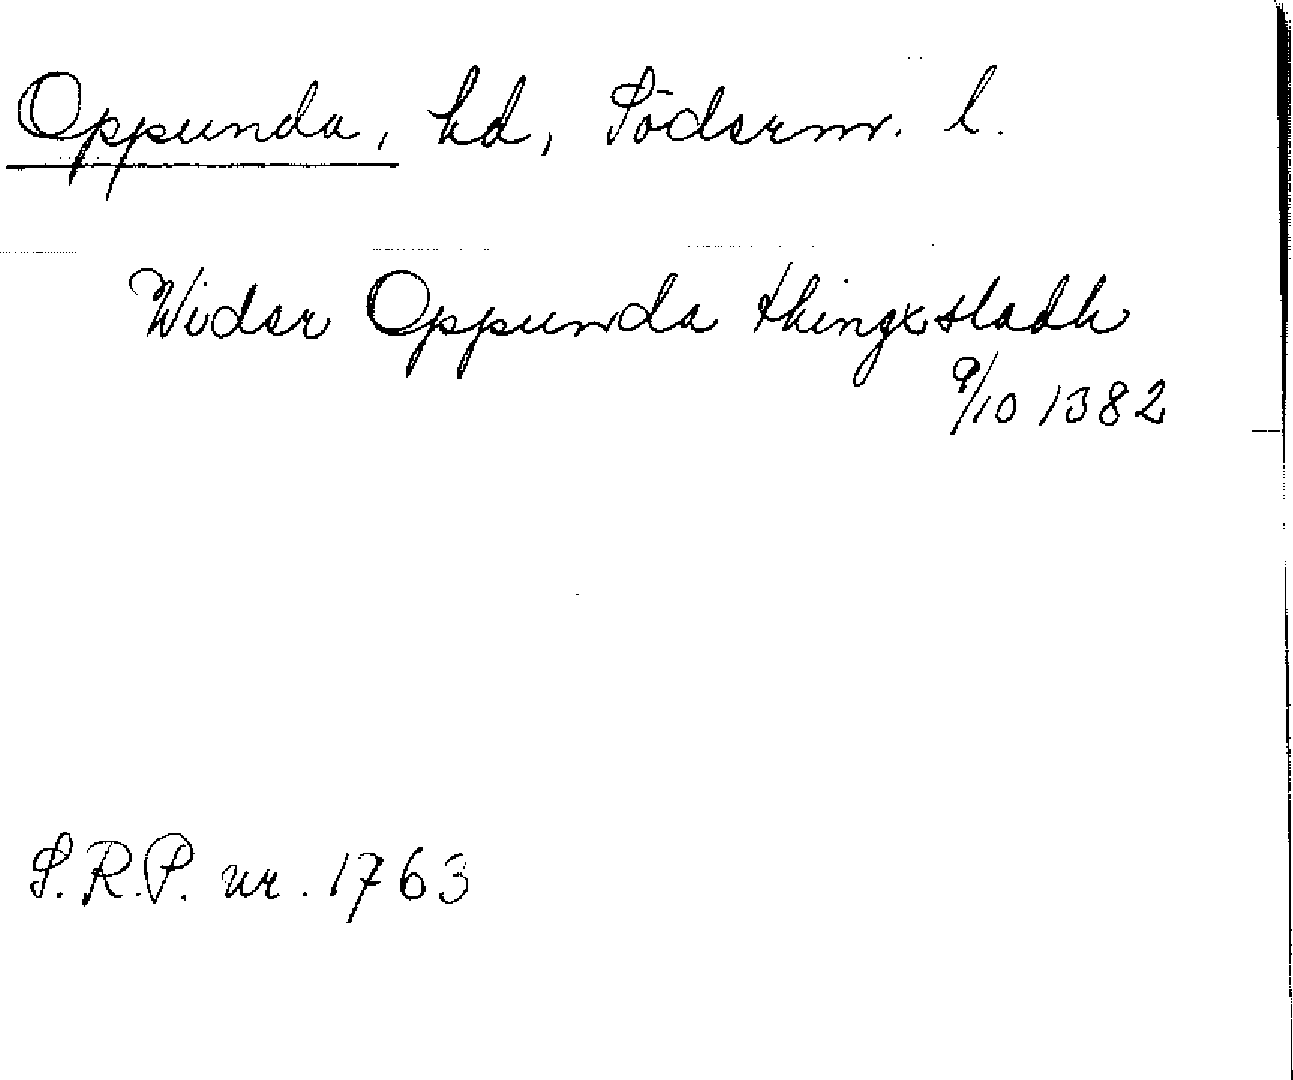 Oppunda, hd, Söderm. l.
Wider Oppunda thingxstadh
9/10 1382
S.R.P. nr. 1763